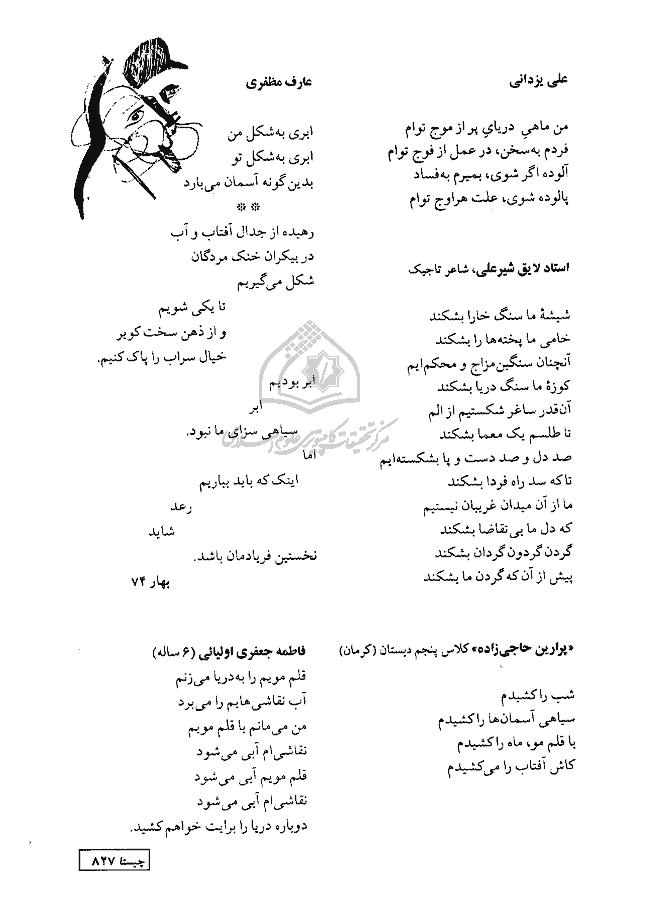 علی یزدانی
من ماهیِ دریایِ پر از موج توام
فردم به‌سخن، در عمل از فوج توام
آلوده اگر شوی، بمیرم به‌فساد
پالوده شوی، علت هراوج توام
استاد لایق شیرعلی، شاعر تاجیک
شیشهٔ ما سنگ خارا بشکند
خامی ما پخته‌ها را بشکند
آنچنان سنگین‌مزاج و محکم‌ایم
کوزهٔ ما سنگ دریا بشکند
آن‌قدر ساغر شکستیم از الم
تا طلسم یک معما بشکند
صد دل و صد دست و پا بشکسته‌ایم
تاکه سد راه فردا بشکند
ما از آن میدان غریبان نیستیم
که دل ما بی‌تقاضا بشکند
گردن گردون گردان بشکند
پیش از آن که گردن ما بشکند
عارف مظفری
ابری به‌شکل من
ابری به‌شکل تو
بدین‌گونه آسمان می‌بارد
**
رهیده از جدال آفتاب و آب
در بیکران خنک مردگان
شکل می‌گیریم
تا یکی شویم
و از ذهن سخت کویر
خیال سراب را پاک کنیم.
ابر بودیم
ابر
سیاهی سزای ما نبود.
اما
اینک که باید بباریم
رعد
شاید
نخستین فریادمان باشد.
بهار ۷۴
«پرارین حاجی‌زاده» کلاس پنجم دبستان (کرمان)
شب را کشیدم
سیاهی آسمان‌ها را کشیدم
با قلم مو، ماه را کشیدم
کاش آفتاب را می‌کشیدم
فاطمه جعفری اولیائی (۶ ساله)
قلم مویم را به‌دریا می‌زنم
آب نقاشی‌هایم را می‌برد
من می‌مانم با قلم مویم
نقاشی‌ام آبی می‌شود
قلم مویم آبی می‌شود
نقاشی‌ام آبی می‌شود
دوباره دریا را برایت خواهم کشید.
چیستا ۸۲۷
مرکز تحقیقات کامپیوتری علوم اسلامی